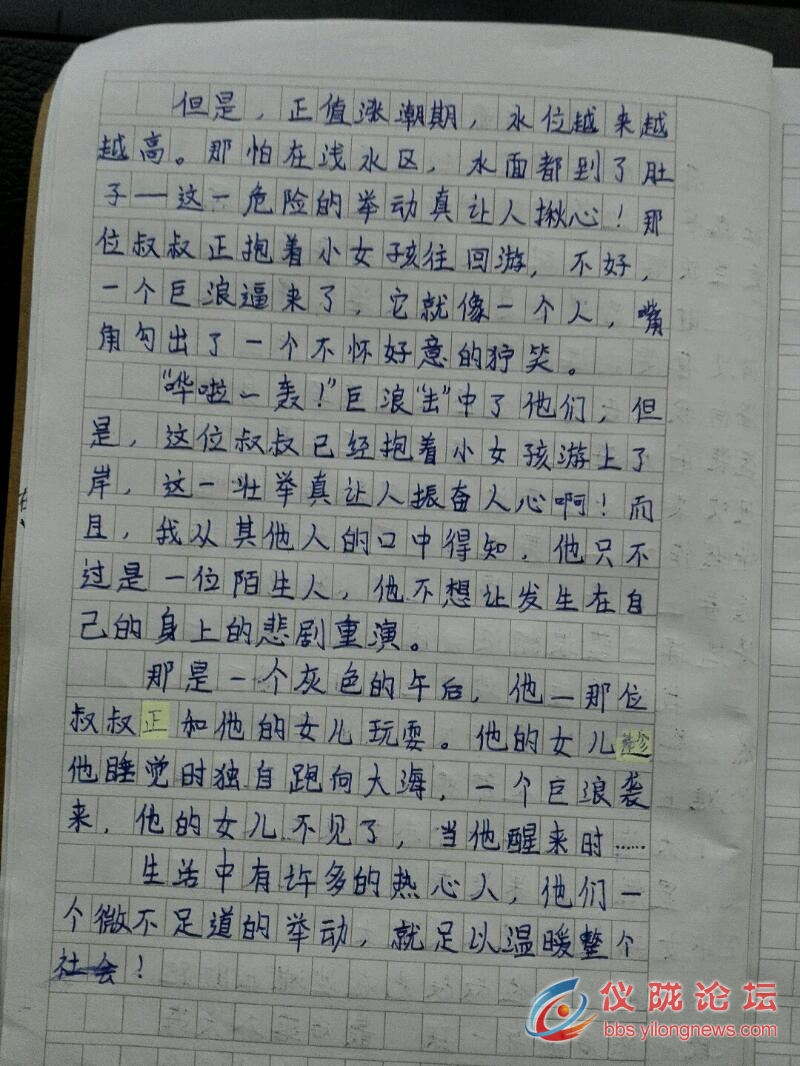 但是，正值涨潮期，水位越来越
越高。那怕在浅水区，水面都到了肚
子——这一危险的举动真让人揪心！那
位叔叔正抱着小女孩往回游，不好，
一个巨浪逼来了，它就像一个人，嘴
角勾出了一个不怀好意的狞笑。
“哗啦一轰！”巨浪“击”中了他们；但
是，这位叔叔已经抱着小女孩游上了
岸，这一壮举真让人振奋人心啊！而
且，我从其他人的口中得知，他只不
过是一位陌生人，他不想让发生在自
己的身上的悲剧重演。
那是一个灰色的午后，他—那位
叔叔正和他的女儿玩耍。他的女儿趁
他睡觉时独自跑向大海，一个巨浪袭
来，他的女儿不见了，当他醒来时……
生活中有许多的热心人，他们一
个微不足道的举动，就足以温暖整个
社会！
仪陇论坛
bbs.yilongnews.com